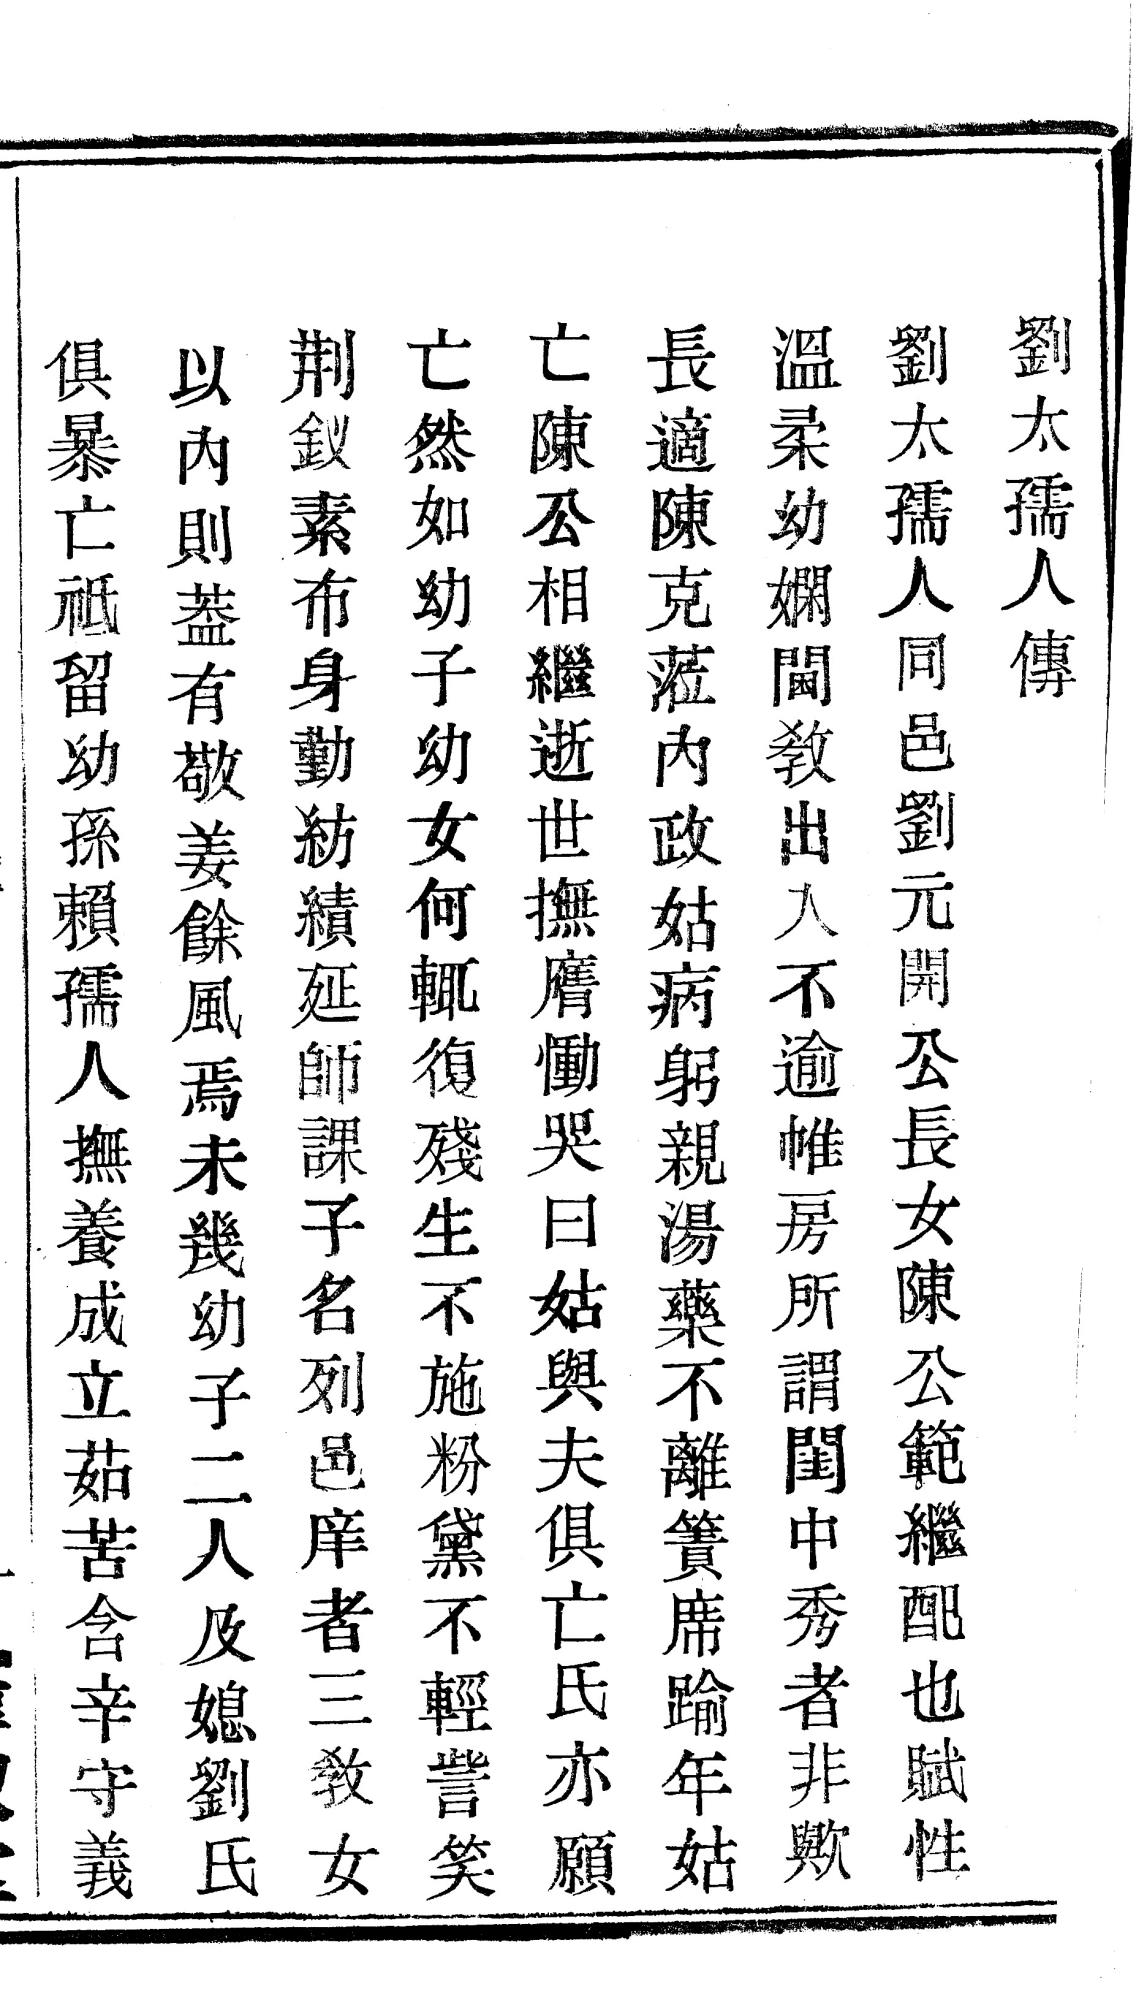 劉太孺人傳
劉太孺人同邑劉元開公長女陳公範繼配也賦性
溫柔幼嫻閫敎出入不逾帷房所謂閨中秀者非歟
長適陳克蒞內政姑病躬親湯藥不離簀席踰年姑
亡陳公相繼逝世撫膺慟哭曰姑與夫俱亡氏亦願
亡然如幼子幼女何輒復殘生不施粉黛不輕訾笑
荆釵素布身勤紡績延師課子名列邑庠者三敎女
以內則葢有敬姜餘風焉未幾幼子二人及媳劉氏
俱暴亡祗留幼孫賴孺人撫養成立茹苦含辛守義